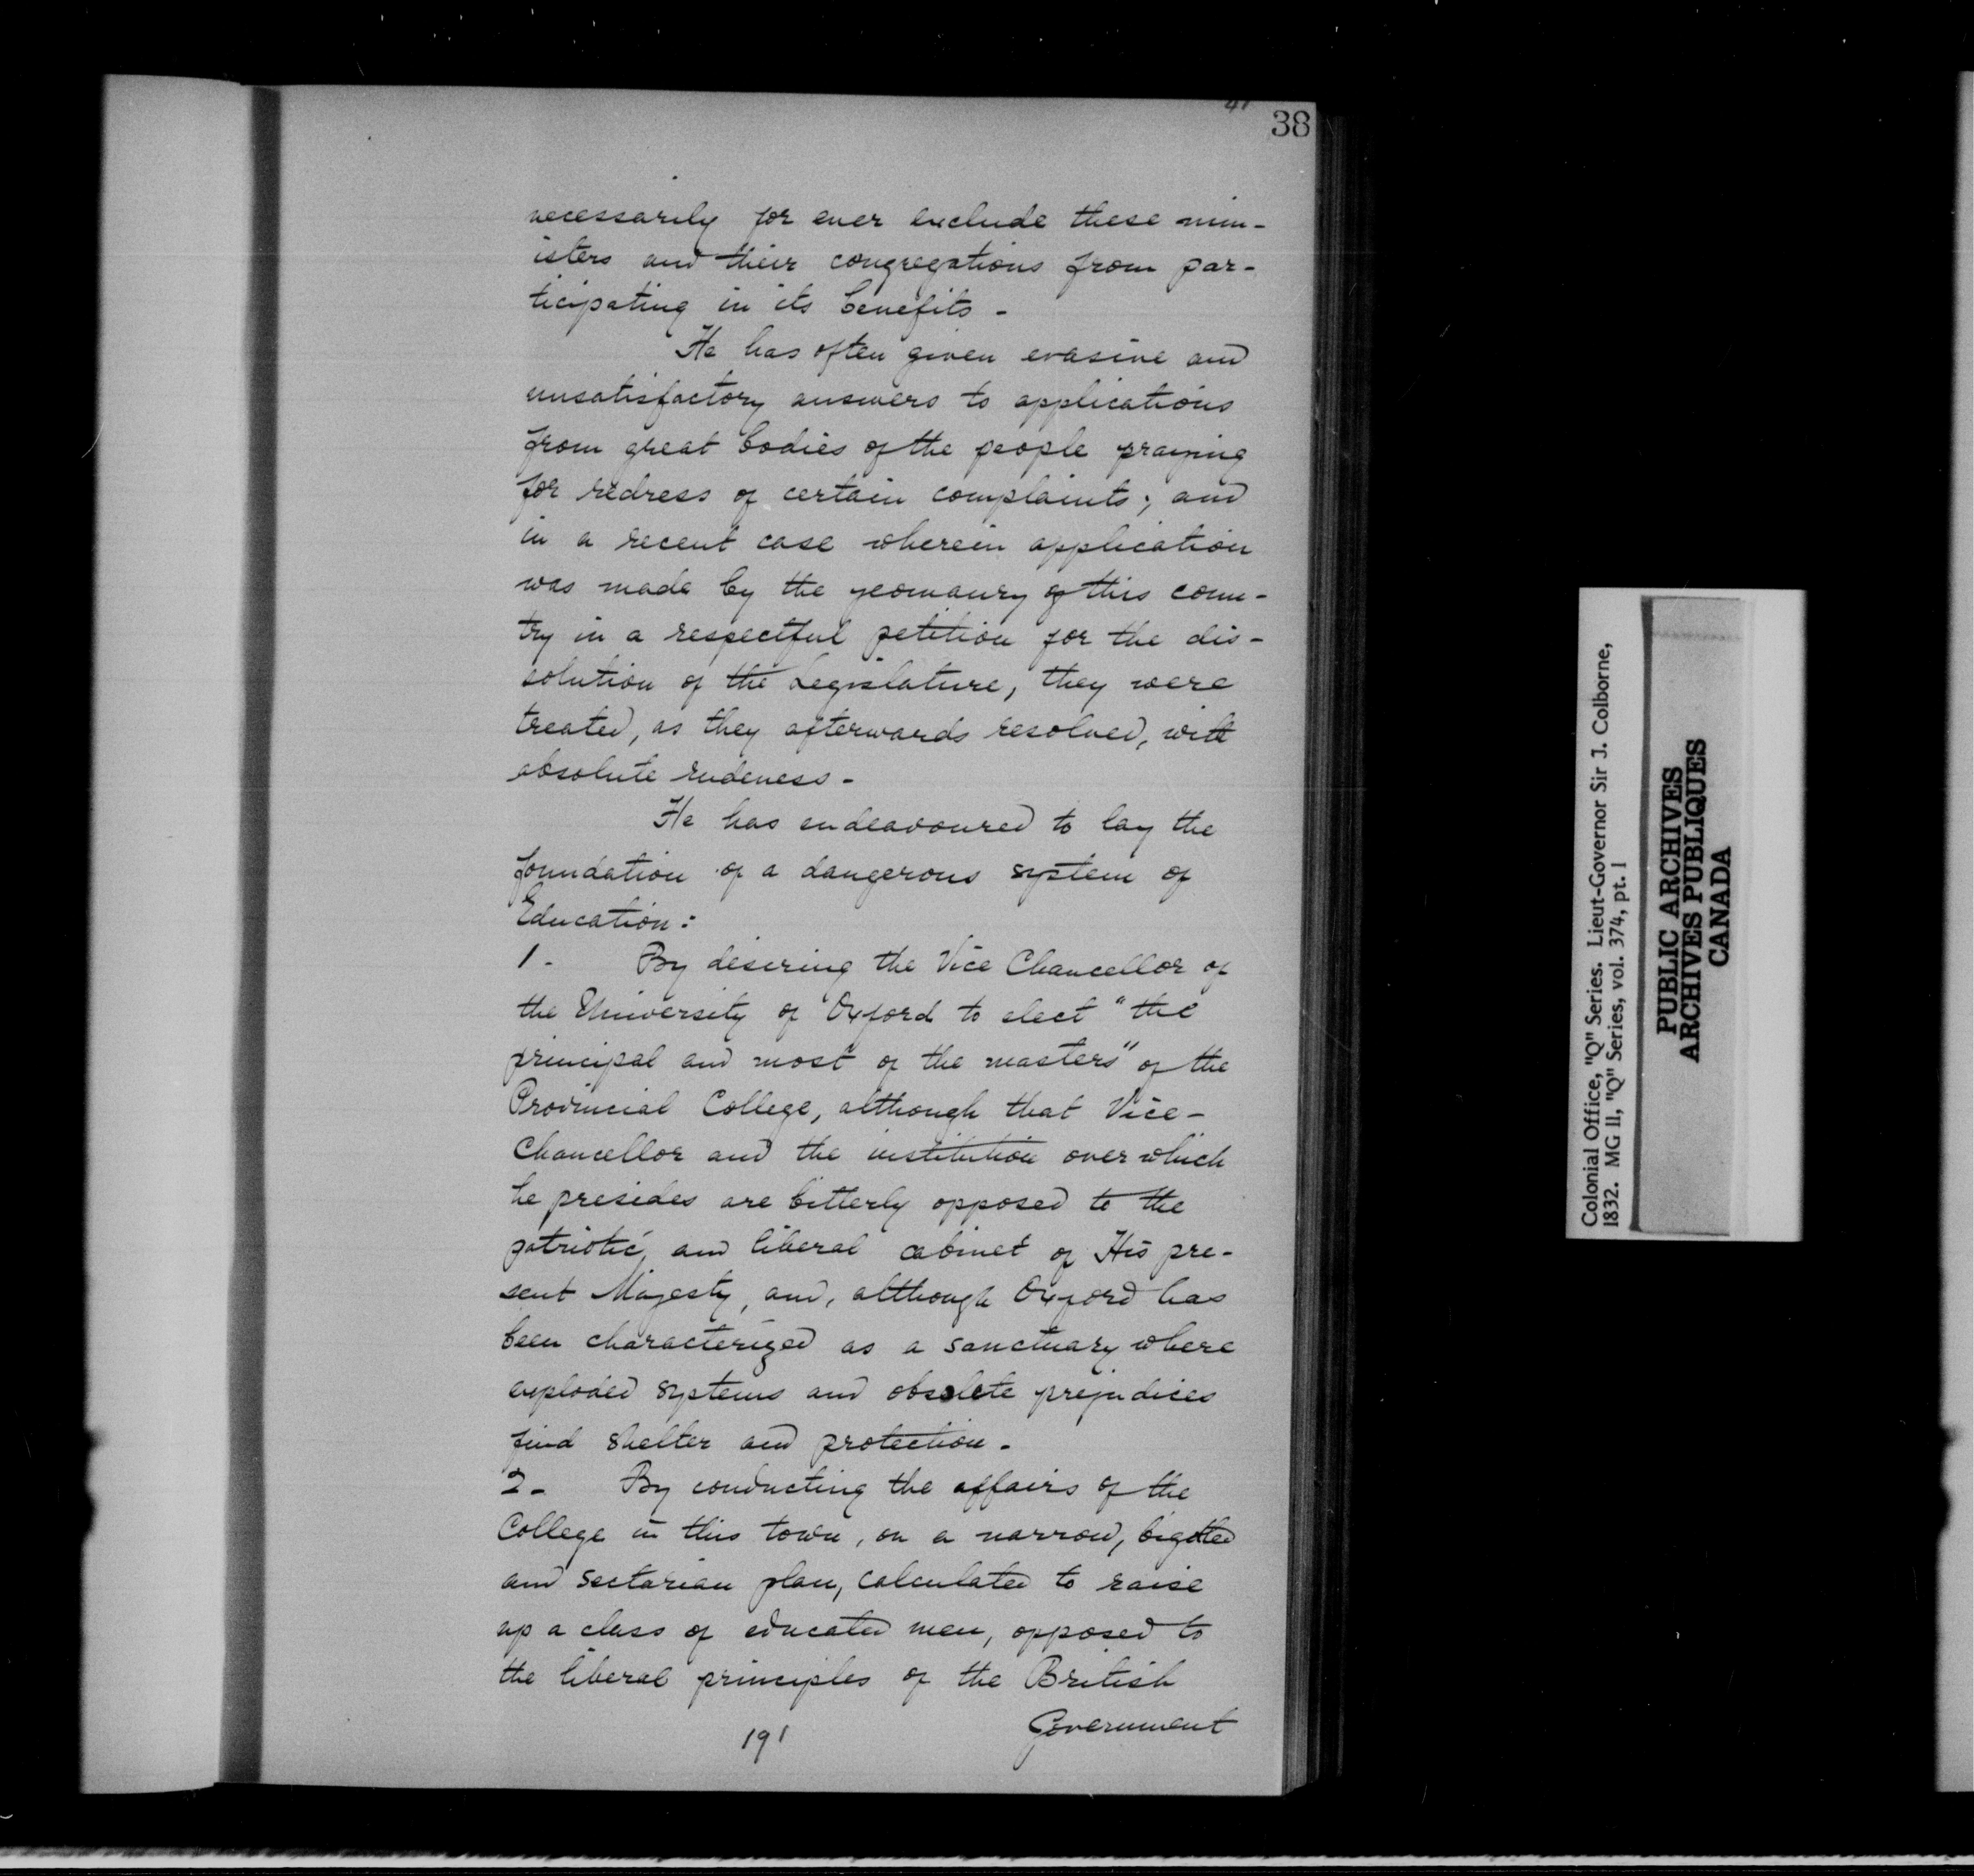 41
38
necessarily for ever exclude these min-
isters and their congregations from par-
ticipating in its benefits -
He has often given evasive and
unsatisfactory answers to applications
from great bodies of the people praying
for redress of certain complaints; and
in a recent case wherein application
was made by the yeomanry of this coun-
try in a respectful petition for the dis-
solution of the Legislature, they were
treated, as they afterwards resolved, with
absolute rudeness -
He has endeavoured to lay the
foundation of a dangerous system of
Education:
1 - By desiring the Vice Chancellor of
the University of Oxford to elect "the
principal and most of the masters" of the
Provincial College, although that Vice-
Chancellor and the institution over which
he presides are bitterly opposed to the
patriotic, and liberal cabinet of His pre-
sent Majesty, and, although Oxford has
been characterized as a sanctuary where
exploded systems and obsolete prejudices
find shelter and protection -
2 - By conducting the affairs of the
College in this town, on a narrow, bigotted
and sectarian plan, calculated to raise
up a class of educated men, opposed to
the liberal principles of the British
Government
191
Colonial Office, "Q" Series. Lieut-Governor Sir J. Colborne,
1832. MG 11, "Q" Series, vol. 374, pt. 1
PUBLIC ARCHIVES
ARCHIVES PUBLIQUES
CANADA